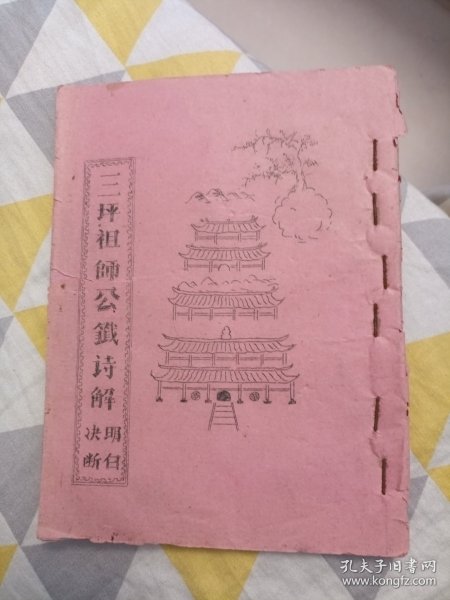 三坪祖師公籤诗解
明白
决断
孔夫子旧书网
www.kongfz.com